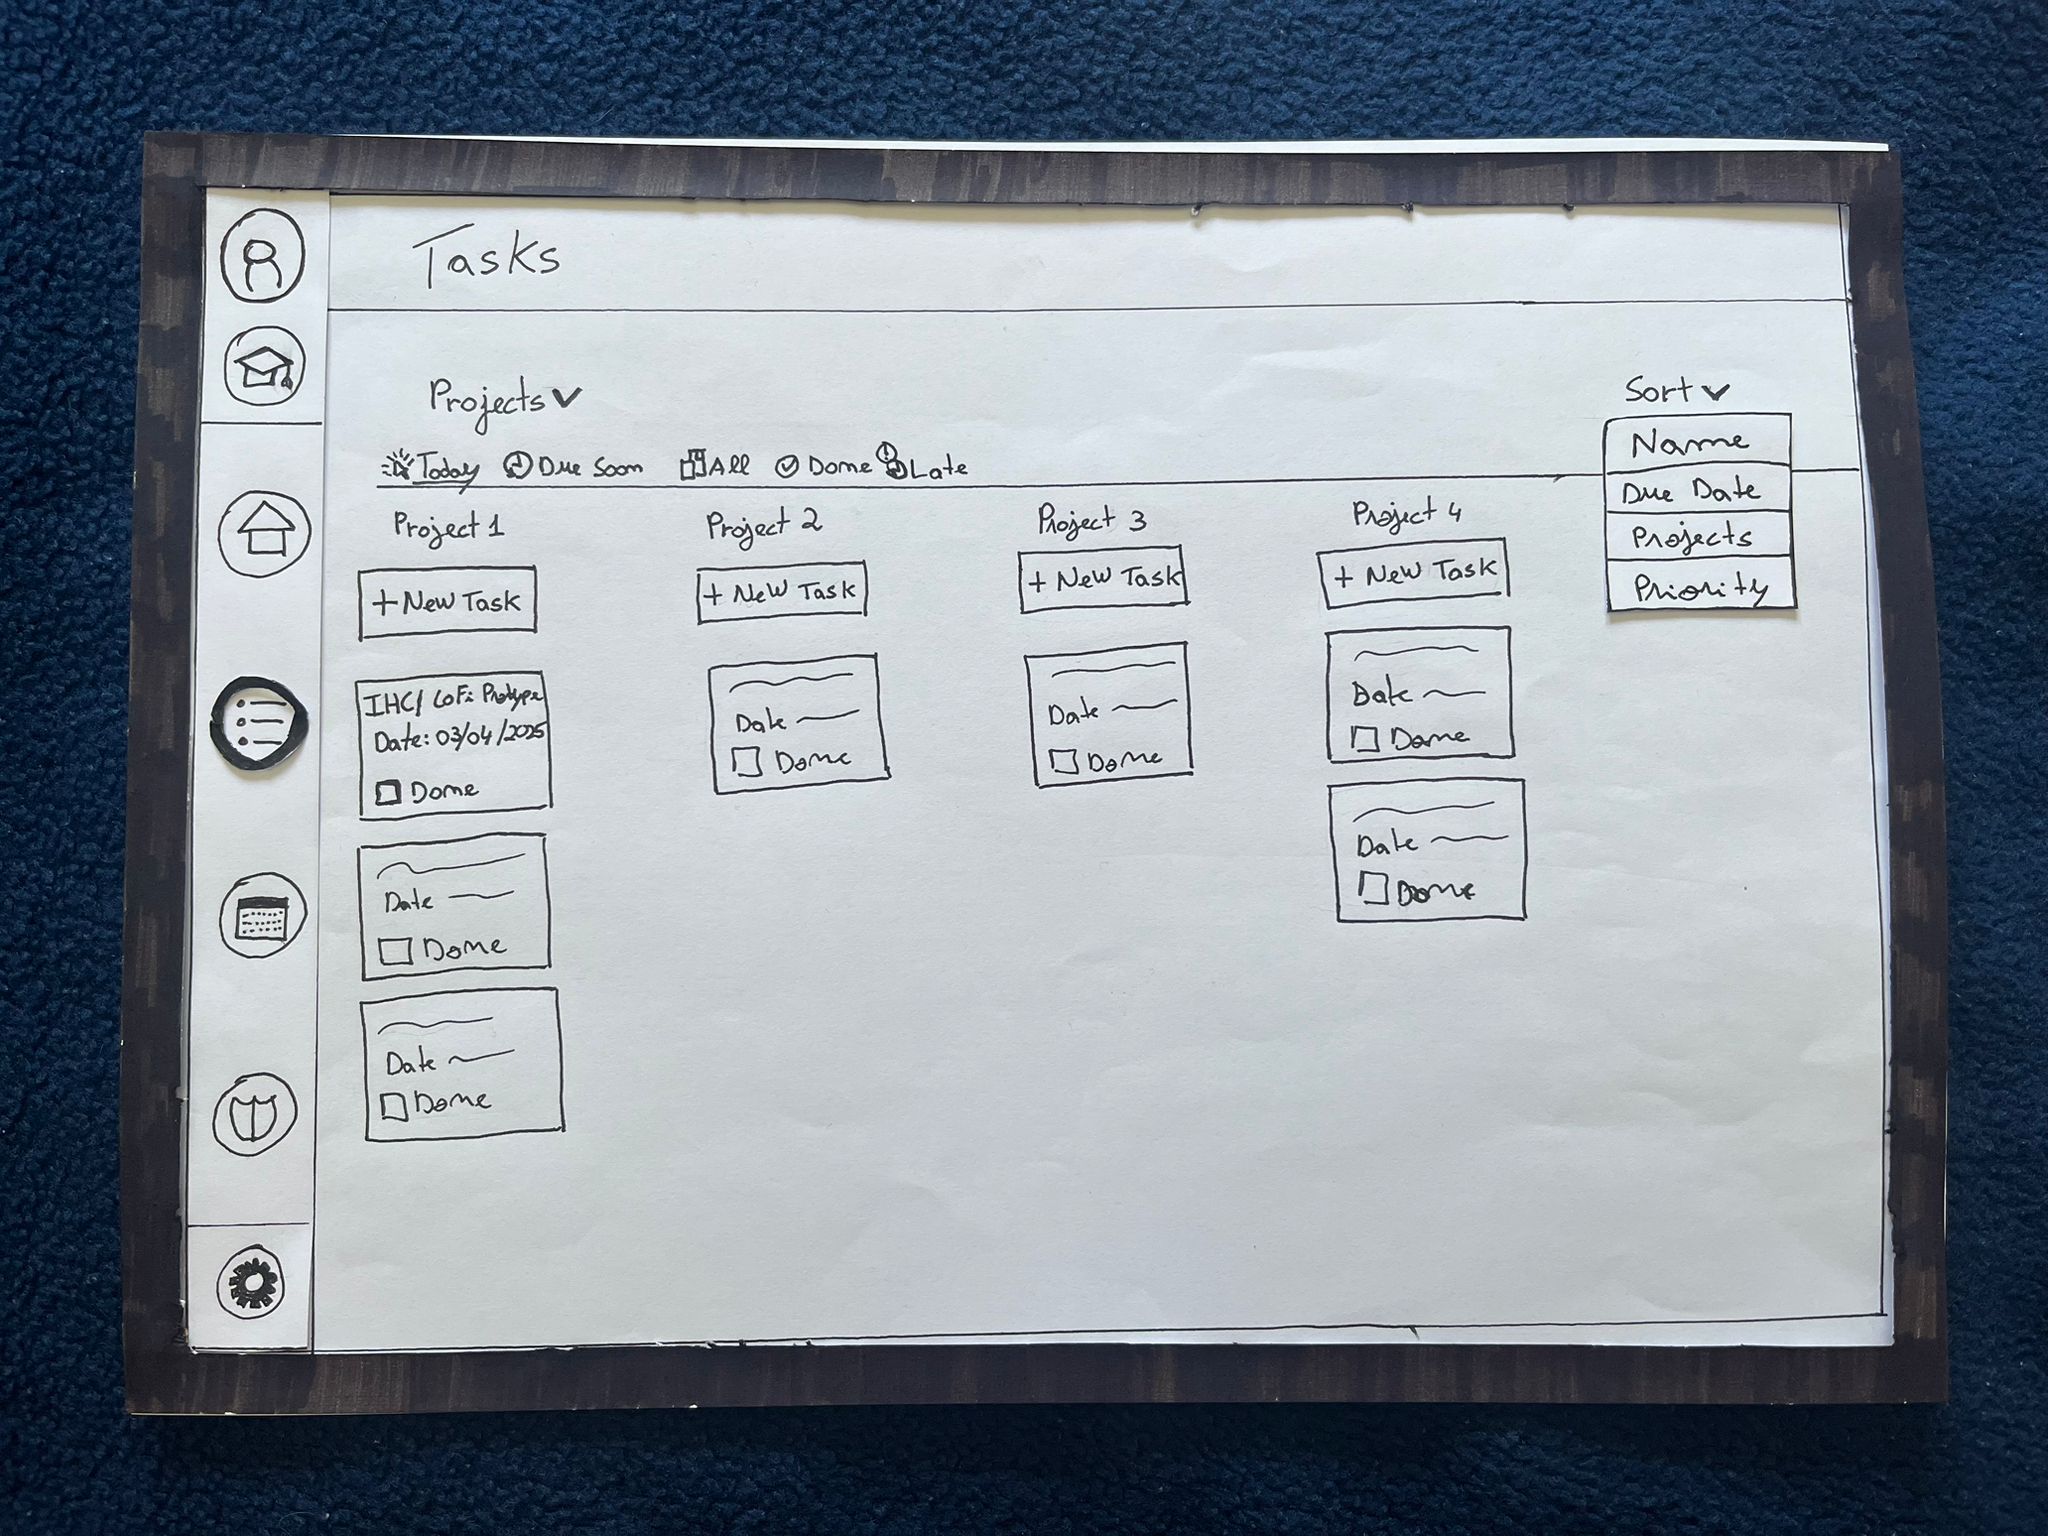 Tasks
Projects
Sort
Name
Due Date
Projects
Priority
Today Due Soon All Done Late
Project 1
+ New Task
IHC/ LoFi Protype
Date: 03/04/2025
Done
Date
Done
Date
Done
Project 2
+ New Task
Date
Done
Project 3
+ New Task
Date
Done
Project 4
+ New Task
Date
Done
Date
Done